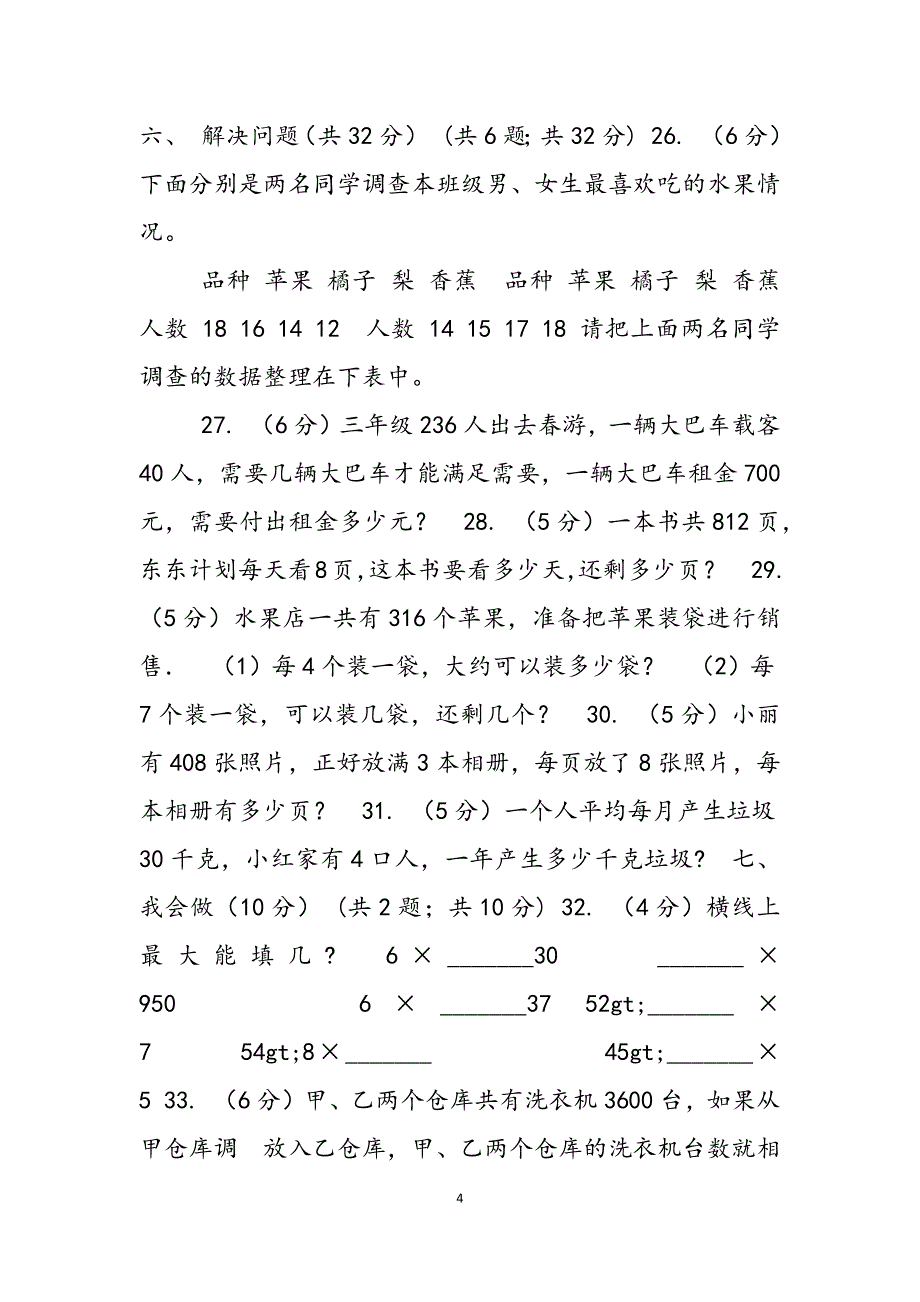 六、 解决问题(共32分) (共6题;共32分) 26. (6分)
下面分别是两名同学调查本班级男、女生最喜欢吃的水果情
况。
品种 苹果 橘子 梨 香蕉 品种 苹果 橘子 梨 香蕉
人数 18 16 14 12 人数 14 15 17 18 请把上面两名同学
调查的数据整理在下表中。
27. (6分)三年级236人出去春游，一辆大巴车载客
40人，需要几辆大巴车才能满足需要，一辆大巴车租金700
元，需要付出租金多少元？ 28. (5分)一本书共812页，
东东计划每天看8页,这本书要看多少天,还剩多少页？ 29.
(5分)水果店一共有316个苹果，准备把苹果装袋进行销
售． (1)每4个装一袋，大约可以装多少袋？ (2)每
7个装一袋，可以装几袋，还剩几个？ 30. (5分)小丽
有408张照片，正好放满3本相册，每页放了8张照片，每
本相册有多少页？ 31. (5分)一个人平均每月产生垃圾
30千克，小红家有4口人，一年产生多少千克垃圾? 七、
我会做(10分) (共2题；共10分) 32. (4分)横线上
最大能填几? 6×_______30 _______×
950 6×_______37 52gt;_______×
7 54gt;8×_______ 45gt;_______×
5 33. (6分)甲、乙两个仓库共有洗衣机3600台，如果从
甲仓库调 放入乙仓库，甲、乙两个仓库的洗衣机台数就相
4